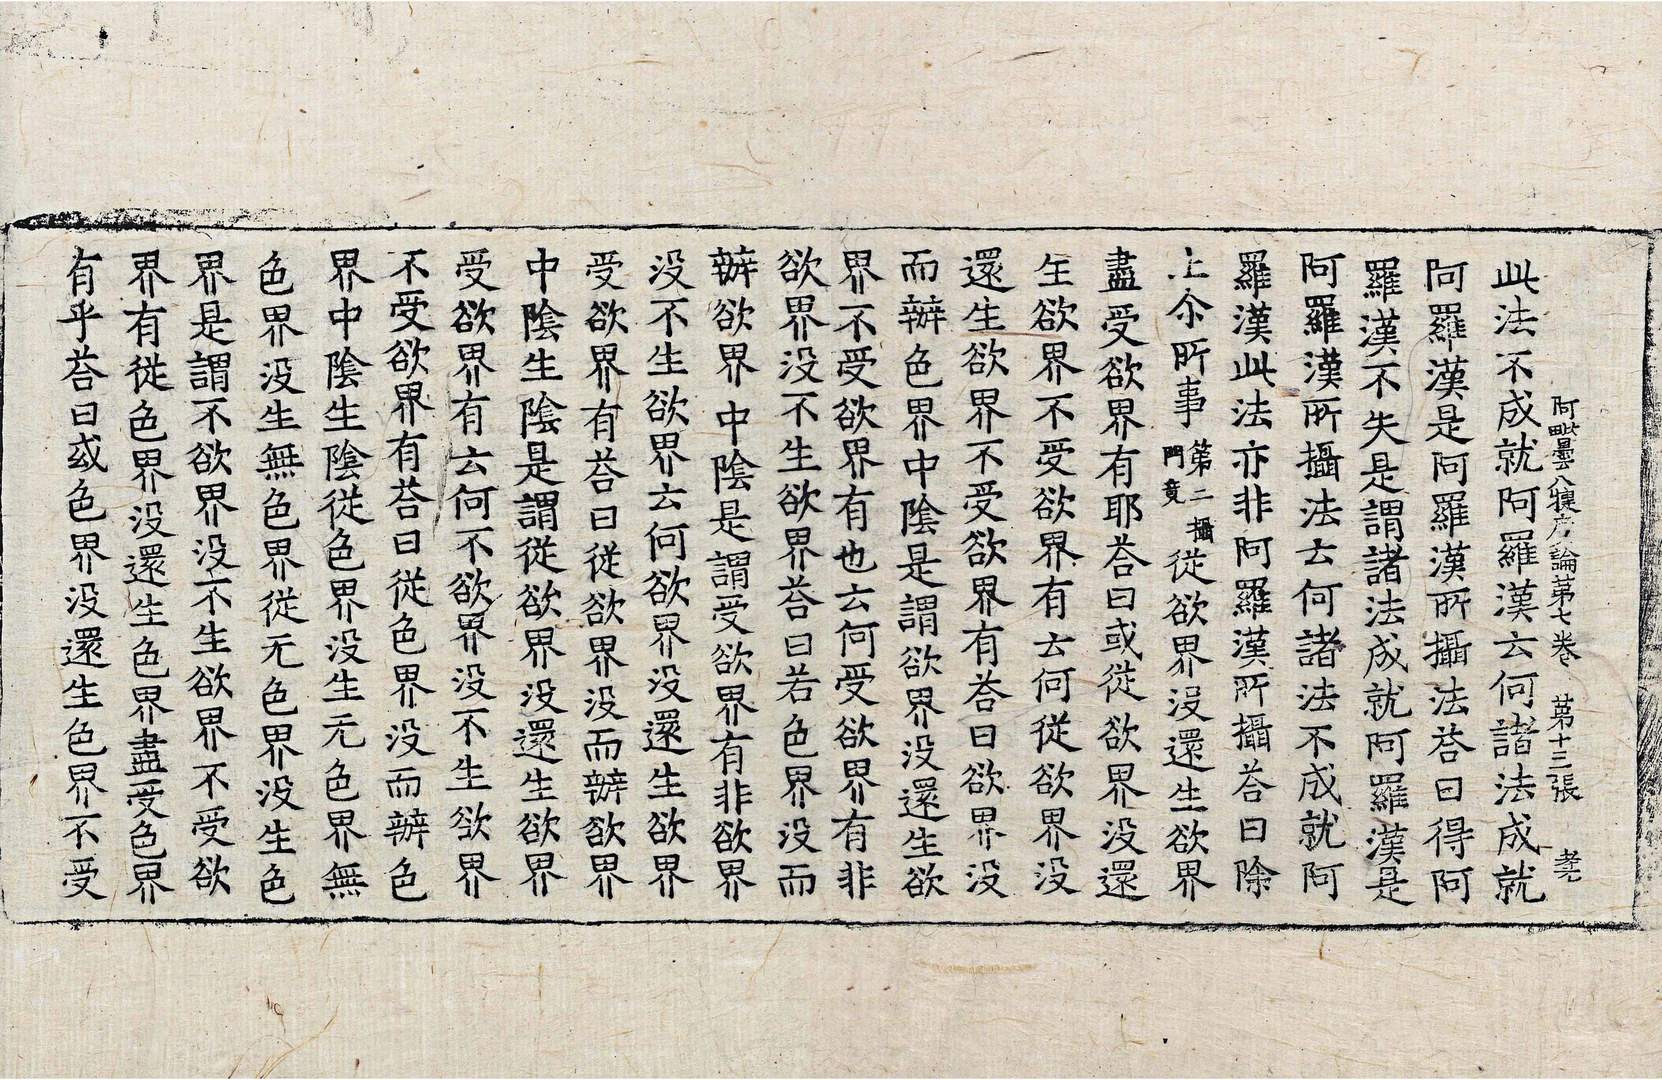 阿毗曇八犍度論第七卷 第十三張
此法不成就阿羅漢云何諸法成就
阿羅漢是阿羅漢所攝法荅曰得阿
羅漢不失是謂諸法成就阿羅漢是
阿羅漢所攝法云何諸法不成就阿
羅漢此法亦非阿羅漢所攝荅曰除
上尒所事第二攝門竟從欲界沒還生欲界
盡受欲界有耶荅曰或從欲界没還
生欲界不受欲界有云何從欲界没
還生欲界不受欲界有荅曰欲界没
而辦色界中陰是謂欲界没還生欲
界不受欲界有也云何受欲界有非
欲界没不生欲界荅曰若色界没而
辦欲界中陰是謂受欲界有非欲界
没不生欲界云何欲界没還生欲界
受欲界有荅曰從欲界没而辦欲界
中陰生陰是謂從欲界没還生欲界
受欲界有云何不欲界没不生欲界
不受欲界有荅曰從色界没而辦色
界中陰生陰從色界没生无色界無
色界没生無色界從无色界没生色
界是謂不欲界没不生欲界不受欲
界有從色界没還生色界盡受色界
有乎荅曰或色界没還生色界不受